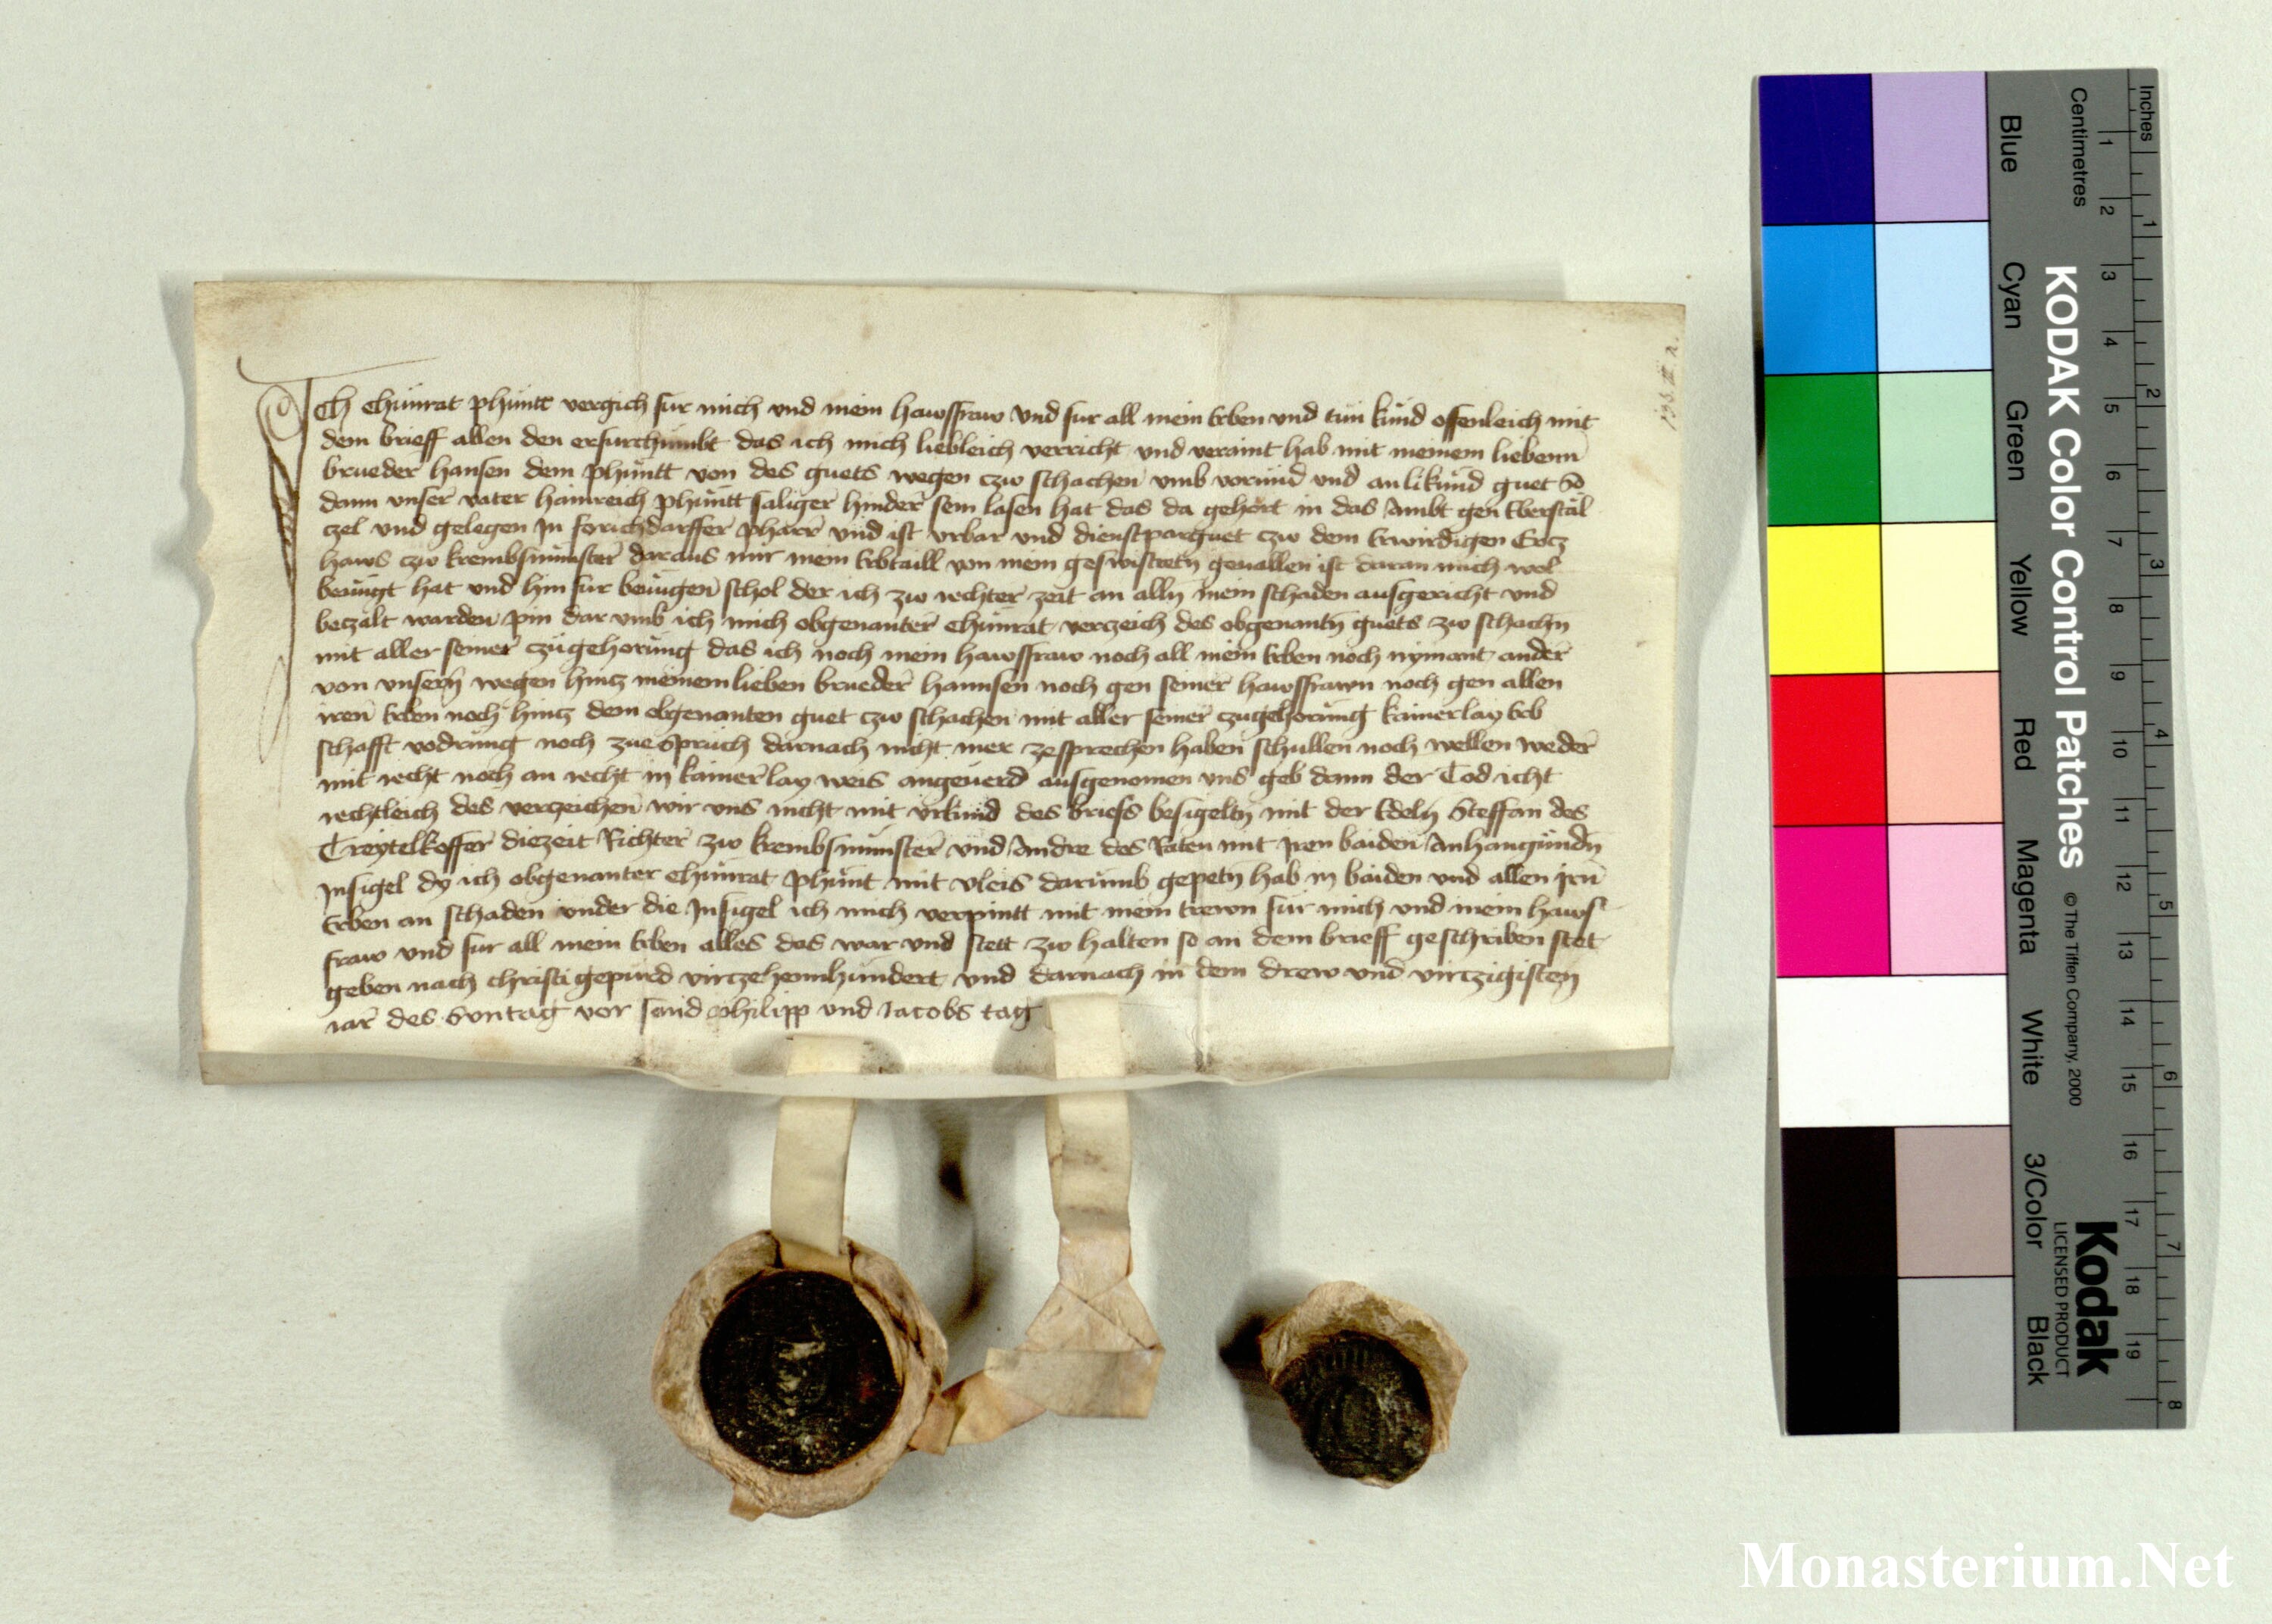 Ich Chünrat Phüntt vergich für mich vnd mein hawsfraw vnd fur all mein Erben vnd tün künd offenleich mit
dem brieff allen den erfürchümbt das ich mich liebleich verricht vnd veraint hab mit meinem liebenn
brueder hansen dem phüntt von des guets wegen czw schachen vmb voründ vnd an likünd guet So
dann vnser vater hainreich phüntt saliger hinder sein lasen hat das da gehört in das Ambt gen Eberstal
czel vnd gelegen In forichdarffer pharr vnd ist vrbar vnd dienstparguet czw dem Erwirdigen Gotz
haws czw krembsmünster daraus mir mein Erbtaill von mein geswistretn geuallen ist daran mich wol
benügt hat vnd hin für benügen schol der ich zw rechter zeit an alln mein schaden ausgericht vnd
beczalt warden pin dar vmb ich mich obgenanter Chünrat verczeich des obgenantn guets zw schachn
mit aller seiner czügehorüng das ich noch mein hawsfraw noch all mein Erben noch nymant ander
von vnsern wegen hincz meinem lieben brueder hannsen noch gen seiner hawsfrawn noch gen allen
iren Erben noch hincz dem obgenanten guet czw schachen mit aller seiner czugehorüng kainerlay Erb
schafft vodrüng noch zuesprüch darnach nicht mer zesprechen haben schullen noch wellen weder
mit recht noch an recht in kainerlay weis angeuerd ausgenomen vns geb dann der Tod icht
rechtleich des verczeichen wir vns nicht mit vrkünd des briefs besigeltn mit der Edeln Steffan des
Treytelkoffer diezeit Richter zw krembsmünster vnd Andre des Raten mit Iren baiden Anhangündn
Insigel dy ich obgenanter Chünrat Phünt mit vleis darümb gepetn hab in baiden vnd allen iren
Erben an schaden vnder die Insigel ich mich verpintt mit mein trewn für mich vnd mein haws
fraw vnd fur all mein Erben alles das war vnd stett zw halten so an dem brieff geschriben stet
geben nach christi gepürd virczehennhündert vnd darnach in dem drew vnd virczigisten
iar des Suntag vor sand philipp vnd Iacobs tag
Inches
Centimetres
1 2 3 4 5 6 7 8
1 2 3 4 5 6 7 8 9 10 11 12 13 14 15 16 17 18 19
KODAK Color Control Patches
© The Tiffen Company, 2000
Kodak
LICENSED PRODUCT
Blue
Cyan
Green
Yellow
Red
Magenta
White
3/Color
Black
Monasterium.Net